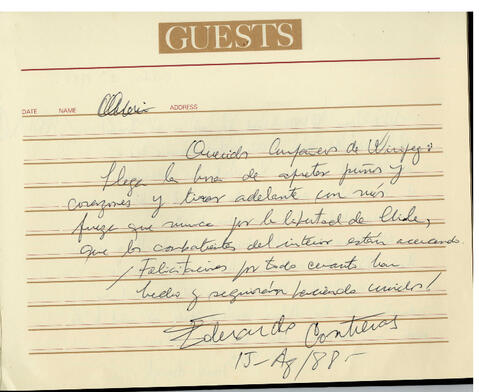 GUESTS
DATE NAME ADDRESS
Queridos Compañeros de Winnipeg:
Llega la hora de apretar puños y
corazones y tirar adelante con más
fuerza que nunca por la libertad de Chile,
que los combatientes del interior están acercando.
¡Felicitaciones por todo cuanto han
hecho y seguirán haciendo unidos!
Eduardo Contreras
15-Ag/88.-